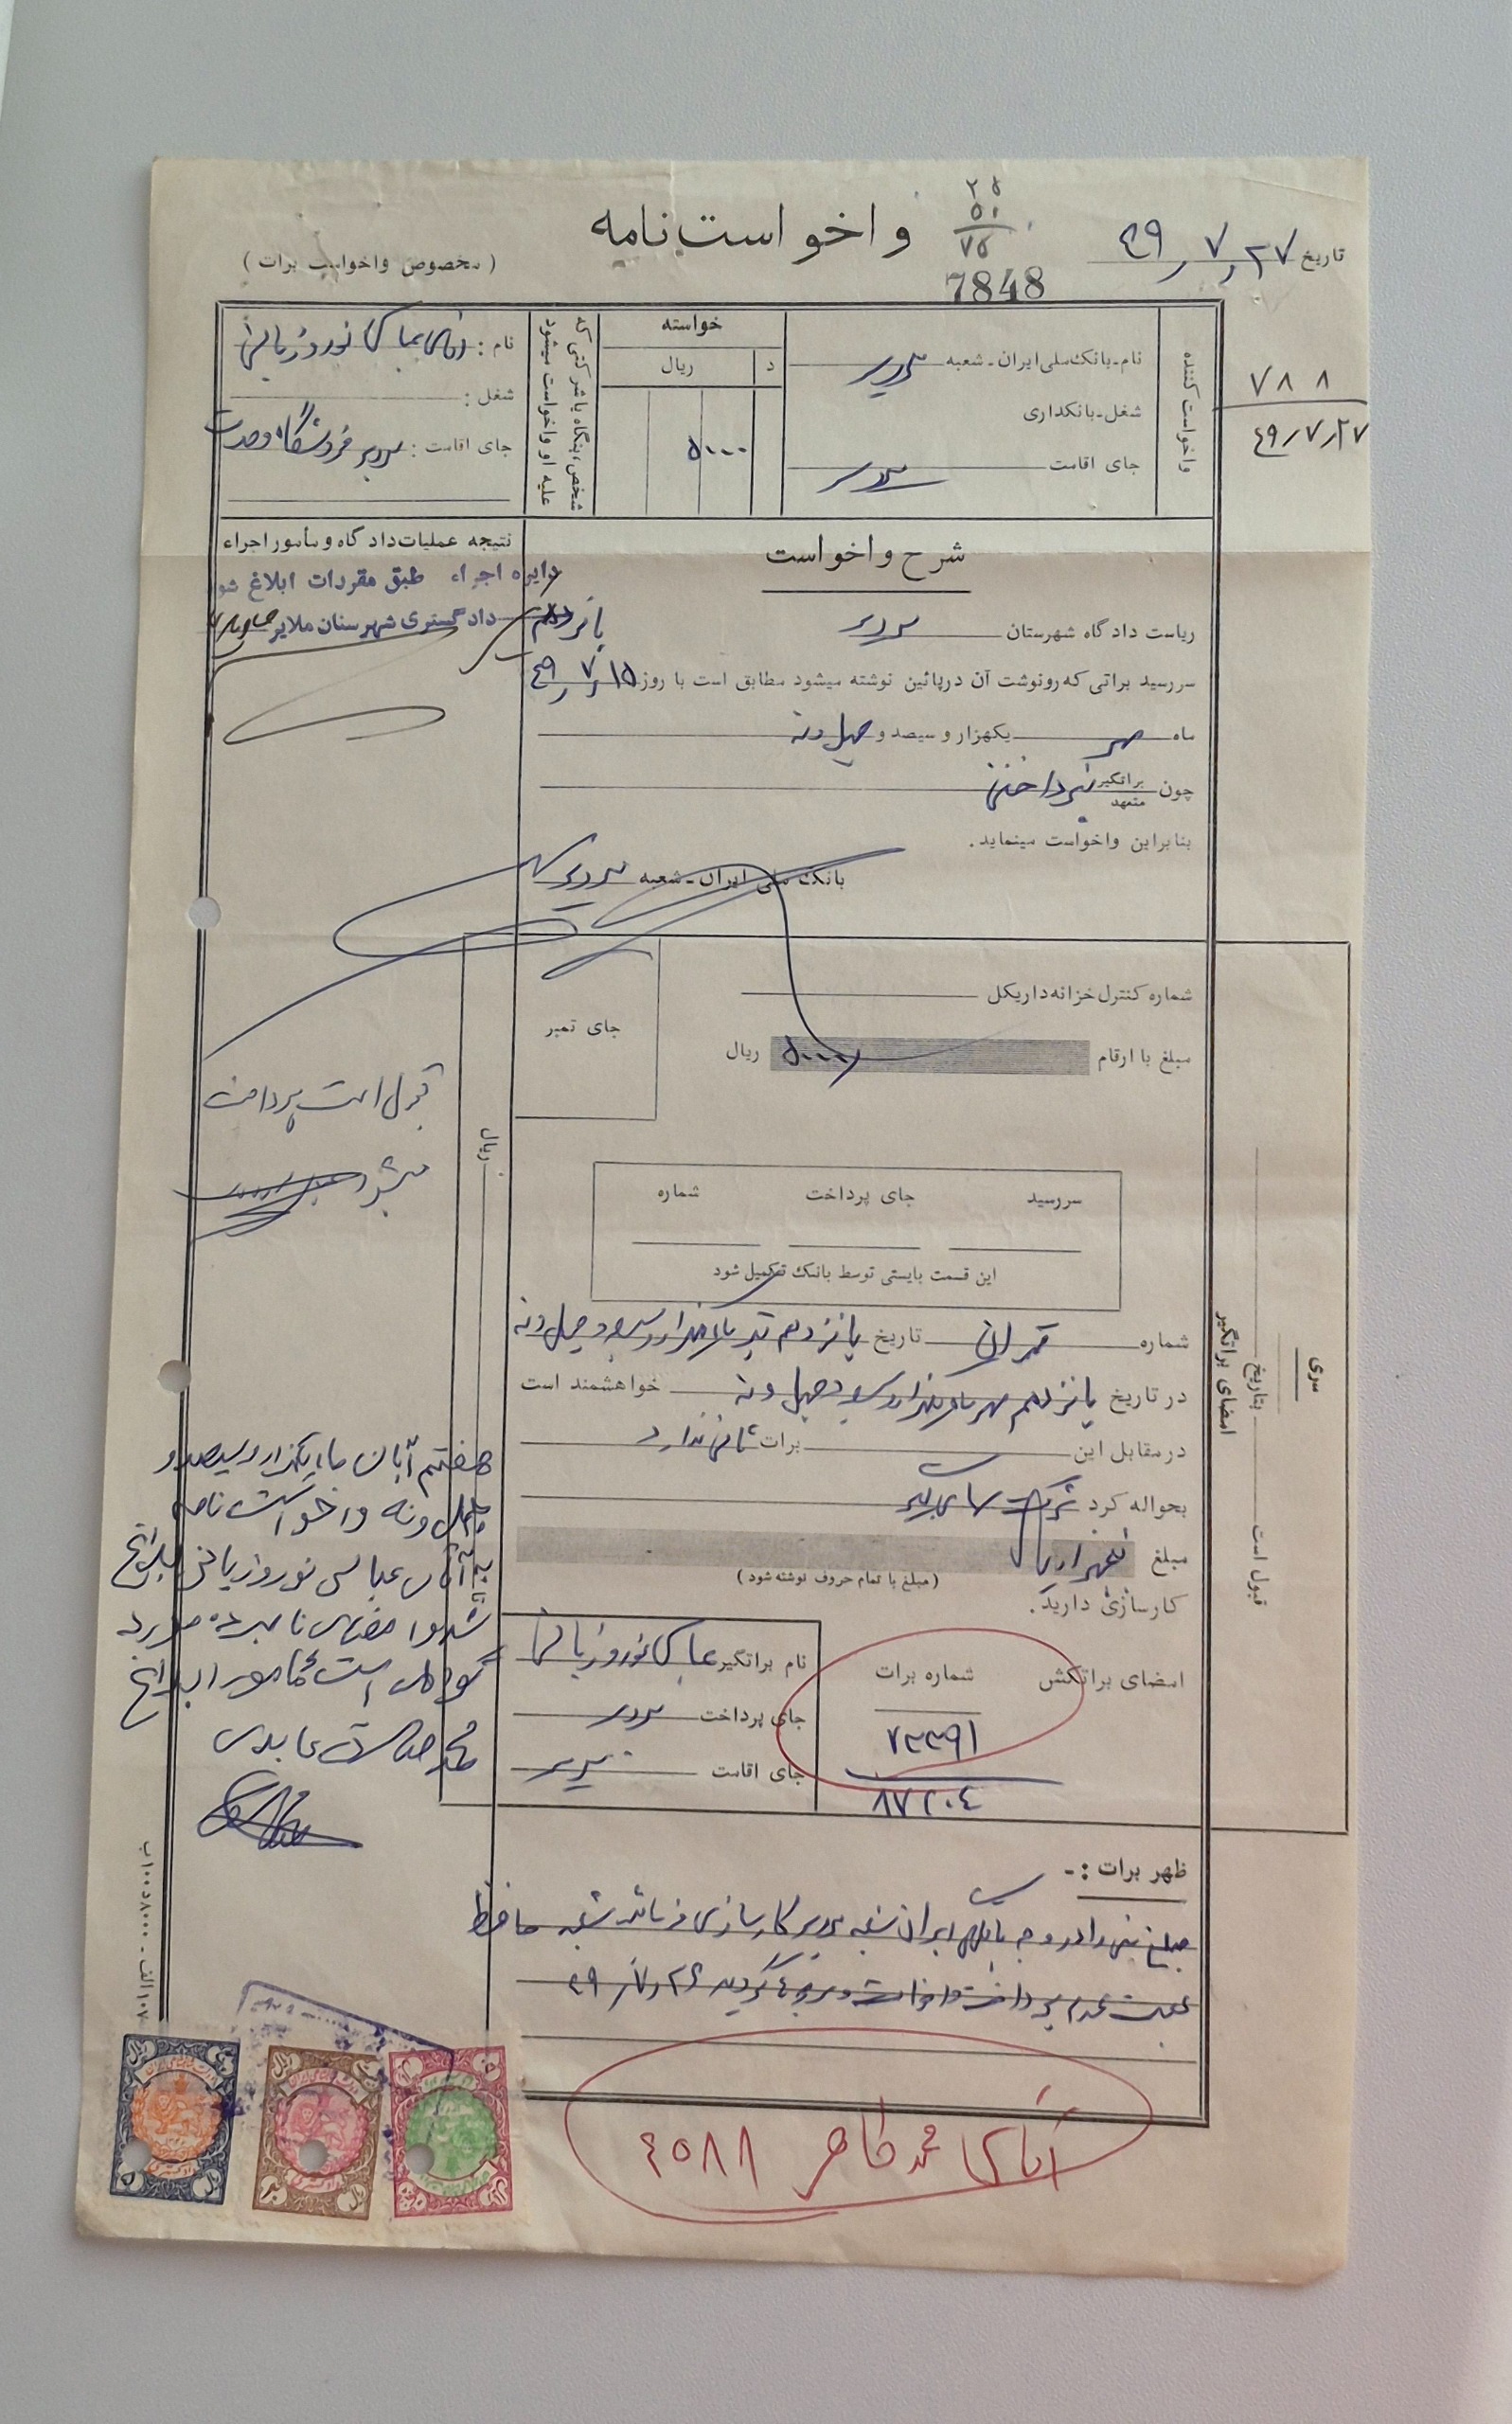 تاریخ ۴۹/۷/۲۷
۲۵
۵۰
۷۵
7848
واخواست‌نامه
(مخصوص واخواست برات)
۷۸۸
۴۹/۷/۲۷
واخواست کننده
نام ـ بانک ملی ایران ـ شعبه ملایر
شغل ـ بانکداری
جای اقامت ملایر
خواسته
د ریال
۵۰۰۰۰
شخص، بنگاه یا شرکتی که علیه او واخواست میشود
نام: آقای عباس نوروزیانی
شغل:
جای اقامت: ملایر فروشگاه وحدت
شرح واخواست
ریاست دادگاه شهرستان ملایر
سررسید براتی که رونوشت آن درپائین نوشته میشود مطابق است با روز پانزدهم ۴۹/۷/۱۵
ماه مهر یکهزار و سیصد و چهل و نه
چون براتگیر متعهد نپرداخته
بنابراین واخواست مینماید.
بانک ملی ایران ـ شعبه ملایر
نتیجه عملیات دادگاه و مأمور اجراء
دایره اجراء طبق مقررات ابلاغ شود
دادگستری شهرستان ملایر
شماره کنترل خزانه‌داریکل
مبلغ با ارقام ۵۰۰۰۰ ریال
جای تمبر
ریال
قبول است پرداخت
میشود
سررسید جای پرداخت شماره
این قسمت بایستی توسط بانک تکمیل شود
شماره تهران تاریخ پانزدهم تیر ماه یکهزار و سیصد و چهل و نه
در تاریخ پانزدهم مهر ماه یکهزار و سیصد و چهل و نه خواهشمند است
در مقابل این برات ثانی ندارد
بحواله کرد شرکت سهامی
مبلغ پنجهزار ریال
(مبلغ با تمام حروف نوشته شود)
کارسازی دارید.
امضای براتکش
شماره برات
۷۲۳۹۱
۸۷۲۰۴
نام براتگیر عباس نوروزیانی
جای پرداخت ملایر
جای اقامت ملایر
سری
بتاریخ
قبول است
امضای براتگیر
هفتم آبان ماه یکهزار و سیصد و
چهل و نه واخواست نامه
به آقای عباس نوروزیانی ابلاغ
شد و امضای نامبرده مورد
گواهی است مامور ابلاغ
محمد عابدی
ظهر برات: ـ
مبلغ متن را در وجه بانک ملی ایران شعبه ملایر کارسازی فرمائید شعبه حافظ
بعلت عدم پرداخت واخواست گردید ۴۹/۷/۲۶
آقای محمد طاهر ۴۵۸۸